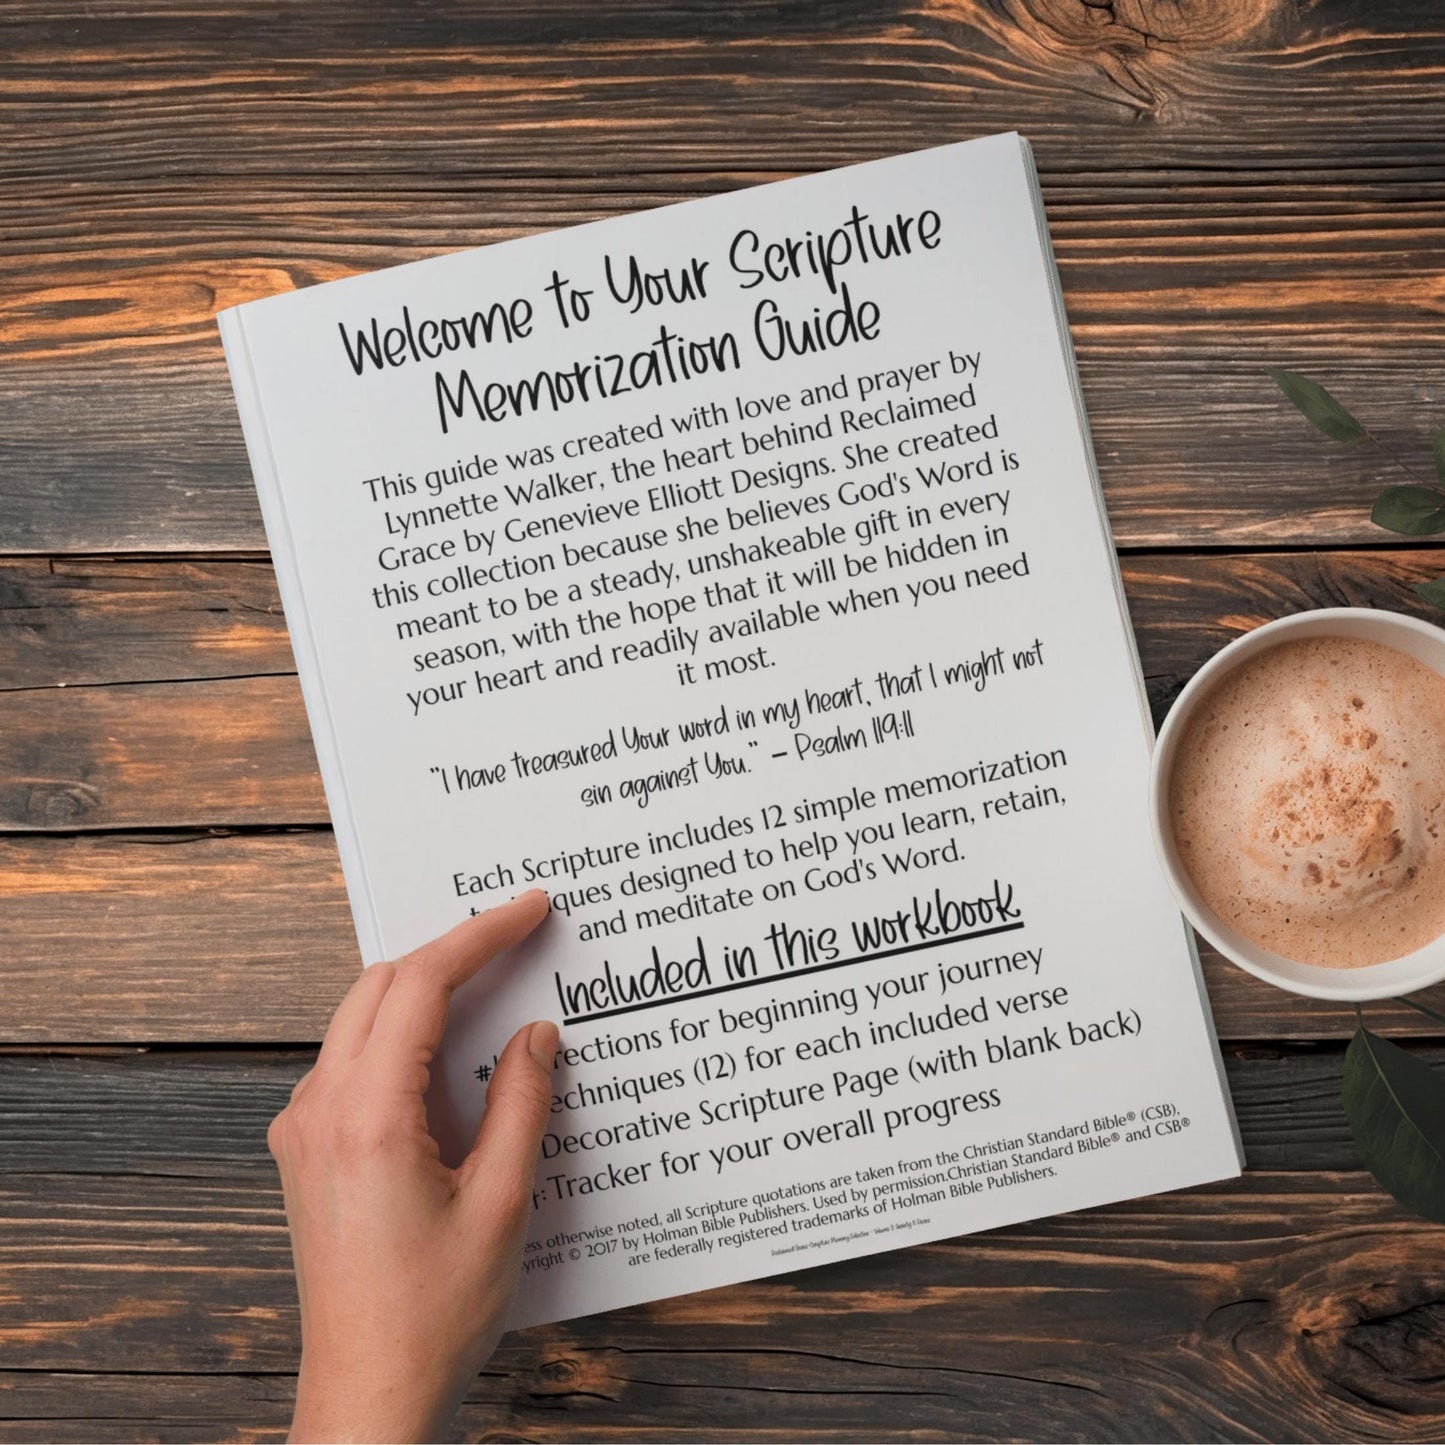 Welcome to Your Scripture
Memorization Guide
This guide was created with love and prayer by
Lynnette Walker, the heart behind Reclaimed
Grace by Genevieve Elliott Designs. She created
this collection because she believes God's Word is
meant to be a steady, unshakeable gift in every
season, with the hope that it will be hidden in
your heart and readily available when you need
it most.
"I have treasured Your word in my heart, that I might not
sin against You." – Psalm 119:11
Each Scripture includes 12 simple memorization
designed to help you learn, retain,
and meditate on God's Word.
Included in this workbook
for beginning your journey
(12) for each included verse
Decorative Scripture Page (with blank back)
Tracker for your overall progress
otherwise noted, all Scripture quotations are taken from the Christian Standard Bible® (CSB),
© 2017 by Holman Bible Publishers. Used by permission.Christian Standard Bible® and CSB®
are federally registered trademarks of Holman Bible Publishers.